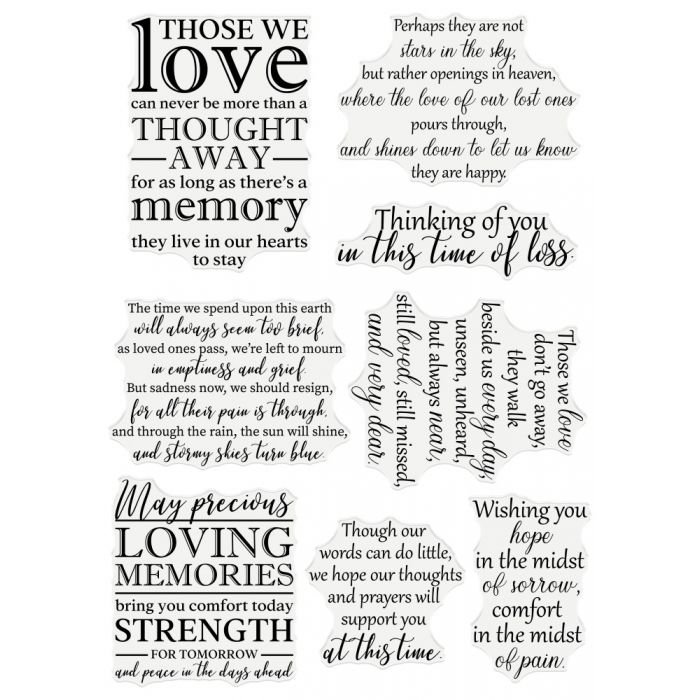 THOSE WE
love
can never be more than a
THOUGHT
AWAY
for as long as there's a
memory
they live in our hearts
to stay
Perhaps they are not
stars in the sky,
but rather openings in heaven,
where the love of our lost ones
pours through,
and shines down to let us know
they are happy.
Thinking of you
in this time of loss.
The time we spend upon this earth
will always seem too brief,
as loved ones pass, we're left to mourn
in emptiness and grief.
But sadness now, we should resign,
for all their pain is through,
and through the rain, the sun will shine,
and stormy skies turn blue.
Those we love
don't go away,
they walk
beside us every day,
unseen, unheard,
but always near,
still loved, still missed,
and very dear.
May precious
LOVING
MEMORIES
bring you comfort today
STRENGTH
FOR TOMORROW
and peace in the days ahead
Though our
words can do little,
we hope our thoughts
and prayers will
support you
at this time.
Wishing you
hope
in the midst
of sorrow,
comfort
in the midst
of pain.